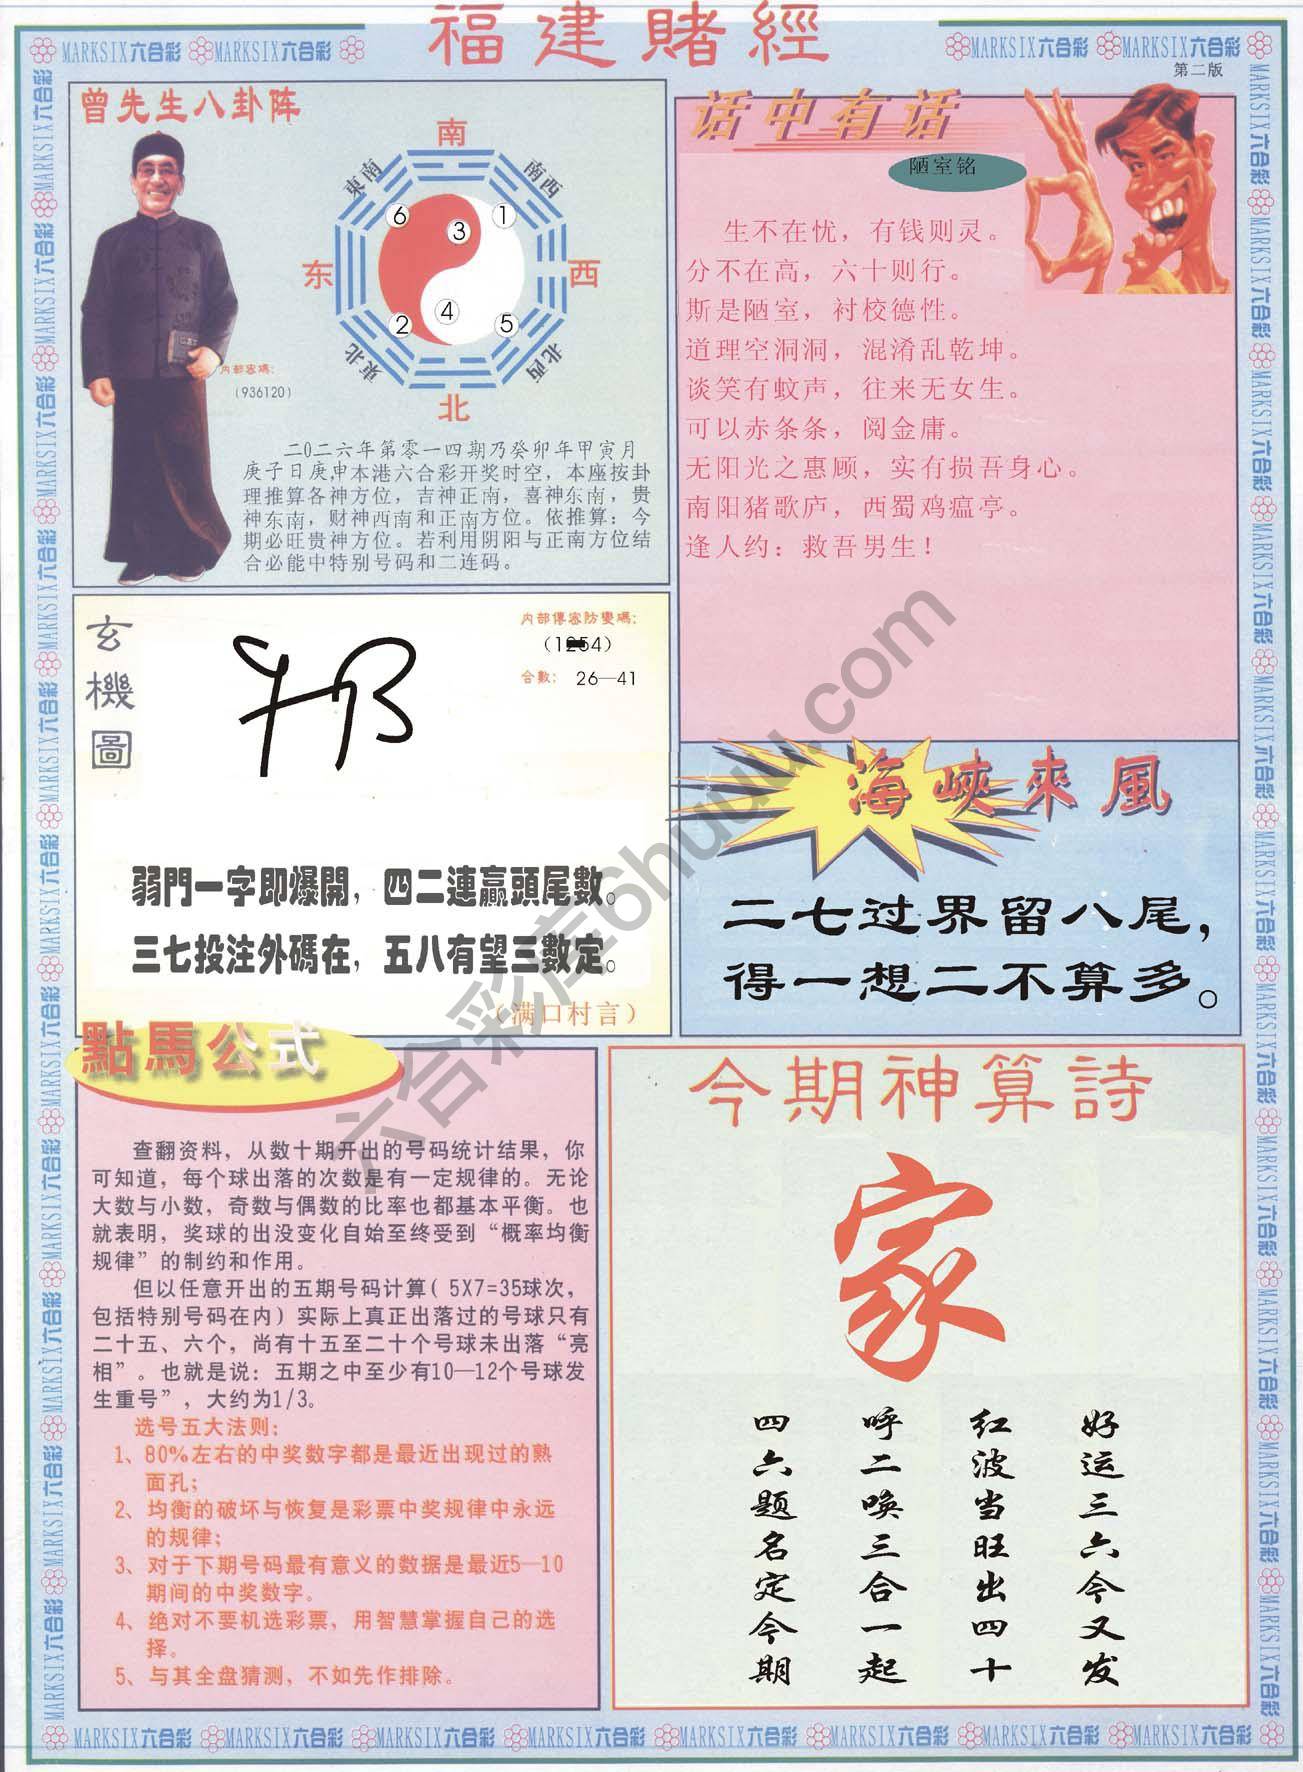 福建賭經
MARKSIX六合彩 MARKSIX六合彩
MARKSIX六合彩 MARKSIX六合彩
第二版
曾先生八卦阵
南
東南
南西
6
3
1
东
西
4
2
5
東北
北西
北
内部密碼:
(936120)
二〇二六年第零一四期乃癸卯年甲寅月
庚子日庚申本港六合彩开奖时空，本座按卦
理推算各神方位，吉神正南，喜神东南，贵
神东南，财神西南和正南方位。依推算：今
期必旺贵神方位。若利用阴阳与正南方位结
合必能中特别号码和二连码。
话中有话
陋室铭
生不在忧，有钱则灵。
分不在高，六十则行。
斯是陋室，衬校德性。
道理空洞洞，混淆乱乾坤。
谈笑有蚊声，往来无女生。
可以赤条条，阅金庸。
无阳光之惠顾，实有损吾身心。
南阳猪歌庐，西蜀鸡瘟亭。
逢人约：救吾男生！
玄機圖
内部傳密防變碼:
合數: 26—41
弱門一字即爆開，四二連贏頭尾數。
三七投注外碼在，五八有望三數定。
（满口村言）
海峽來風
二七过界留八尾，
得一想二不算多。
點馬公式
查翻资料，从数十期开出的号码统计结果，你
可知道，每个球出落的次数是有一定规律的。无论
大数与小数，奇数与偶数的比率也都基本平衡。也
就表明，奖球的出没变化自始至终受到“概率均衡
规律”的制约和作用。
但以任意开出的五期号码计算(5X7=35球次，
包括特别号码在内)实际上真正出落过的号球只有
二十五、六个，尚有十五至二十个号球未出落“亮
相”。也就是说：五期之中至少有10—12个号球发
生重号”，大约为1/3。
选号五大法则；
1、80%左右的中奖数字都是最近出现过的熟
面孔；
2、均衡的破坏与恢复是彩票中奖规律中永远
的规律；
3、对于下期号码最有意义的数据是最近5—10
期间的中奖数字。
4、绝对不要机选彩票，用智慧掌握自己的选
择。
5、与其全盘猜测，不如先作排除。
今期神算詩
家
好运三六今又发
红波当旺出四十
呼二唤三合一起
四六题名定今期
六合彩库6huuu.com
MARKSIX六合彩 MARKSIX六合彩 MARKSIX六合彩 MARKSIX六合彩 MARKSIX六合彩 MARKSIX六合彩 MARKSIX六合彩 MARKSIX六合彩